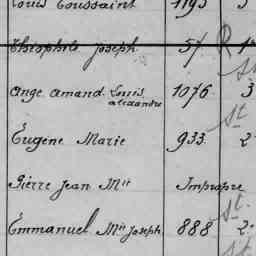 Louis Toussaint 1193 3
Théophile Joseph 57 R 1
St
Ange Amand Louis 1076 3
alexandre
St
Eugène Marie 933 2
Pierre Jean Mie Impropre
St.
Emmanuel Mie Joseph 888 2
St